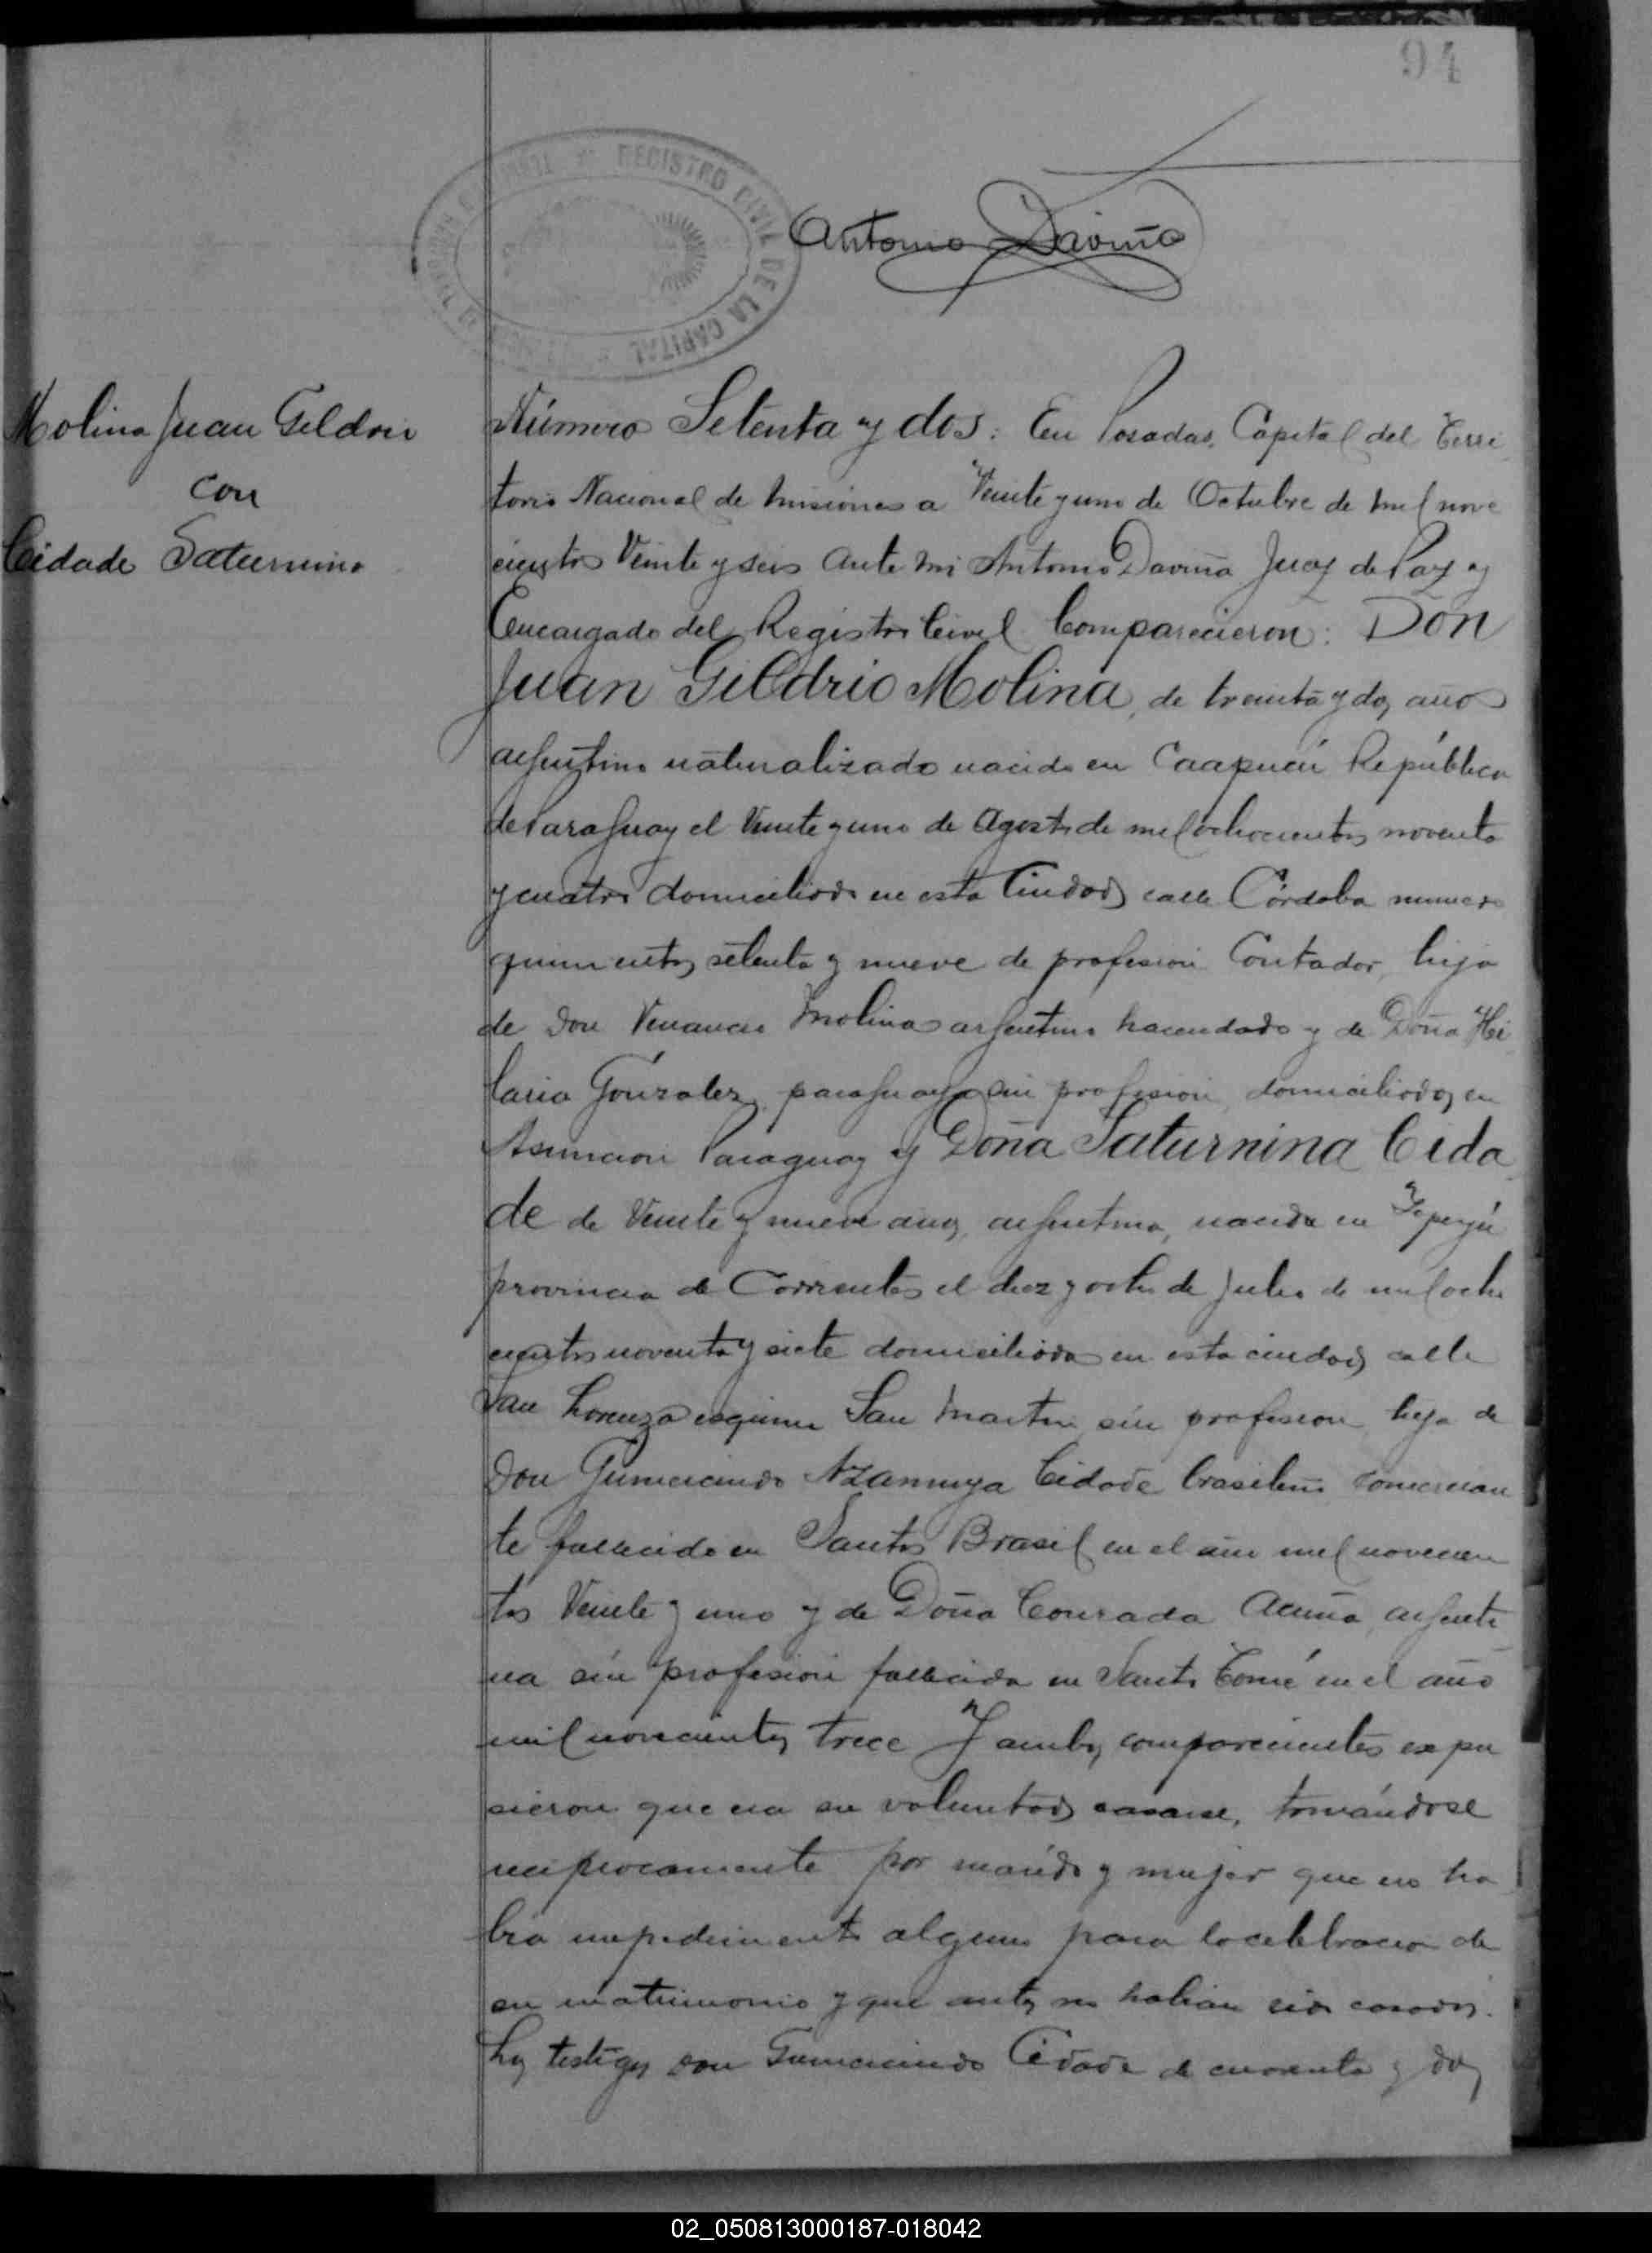 94
REGISTRO CIVIL DE LA CAPITAL
Antonio Daviña
Molina Juan Gildrio
con
Cidade Saturnina
Número Setenta y dos: En Posadas, Capital del Terri
torio Nacional de Misiones a Veinte y uno de Octubre de mil nove
cientos Veinte y seis ante mi Antonio Daviña Juez de Paz y
Encargado del Registro Civil Comparecieron: Don
Juan Gildrio Molina, de treinta y dos años
argentino naturalizado nacido en Caapucú República
de Paraguay el Veinte y uno de Agosto de mil ochocientos noventa
y cuatro domiciliado en esta Ciudad calle Córdoba numero
quinientos setenta y nueve de profesion Contador, hijo
de Don Venancio Molina argentino hacendado y de Doña Hi
laria Gónzalez, paraguaya sin profesion, domiciliados en
Asuncion Paraguay y Doña Saturnina Cida
de de Veinte y nueve años, argentina, nacida en Yapeyú
provincia de Corrientes el diez y ocho de Julio de mil ocho
cientos noventa y siete domiciliada en esta ciudad calle
San Lorenzo esquina San Martin sin profesion hija de
Don Gumercindo Cidade brasileño comercian
te fallecido en Santos Brasil en el año mil novecien
tos Veinte y uno y de Doña Conrada Acuña, argenti
na sin profesion fallecida en Santo Tomé en el año
mil novecientos trece Y ambos comparecientes expu
sieron que era su voluntad casarse, tomándose
reciprocamente por marido y mujer que no ha
bia impedimento alguno para la celebracion de
su matrimonio y que antes no habian sido casados.
Los testigos Don Gumercindo Cidade de cuarenta y dos
02_050813000187-018042